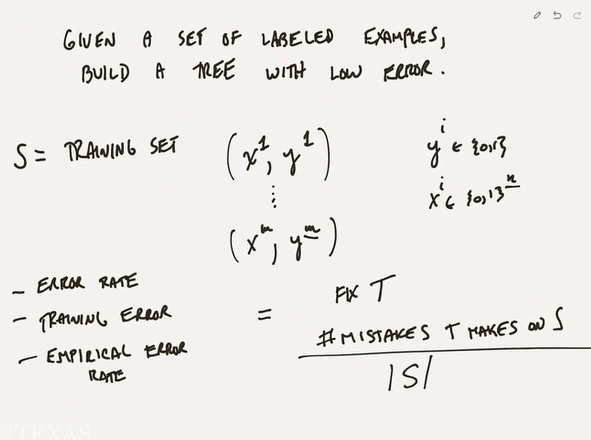 GIVEN A SET OF LABELED EXAMPLES,
BUILD A TREE WITH LOW ERROR.
S = TRAINING SET (x^1, y^1)
⋮
(x^m, y^m)
y^i ∈ {0,1}
x^i ∈ {0,1}^n
- ERROR RATE
- TRAINING ERROR
- EMPIRICAL ERROR
RATE
=
FIX T
#MISTAKES T MAKES ON S
|S|
TEXAS